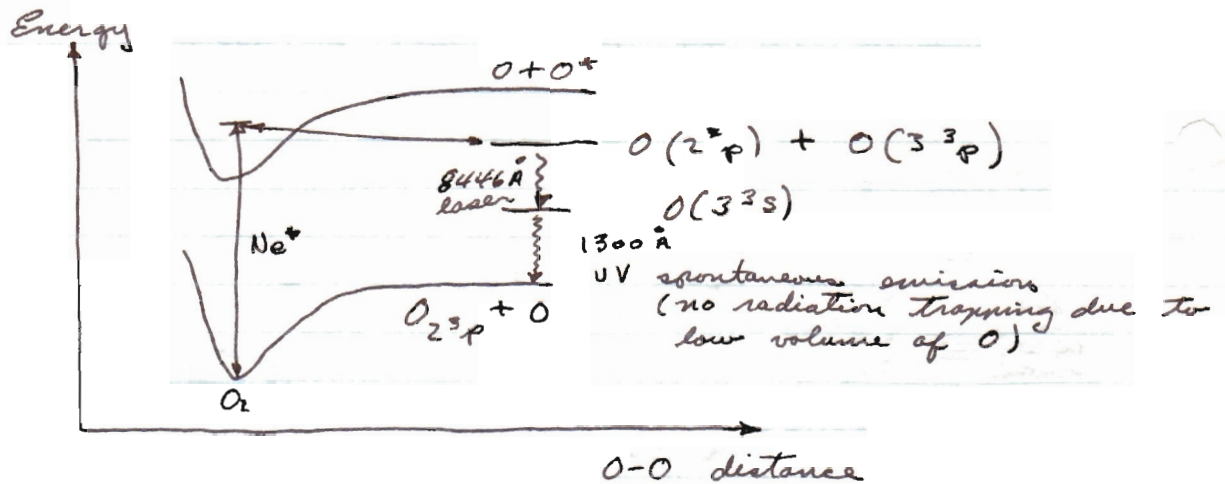 Energy
O + O*
O(2³p) + O(3³p)
8446Å
laser
O(3³s)
Ne*
1300Å
UV spontaneous emission
(no radiation trapping due to
low volume of O)
O₂³p + O
O₂
O-O distance